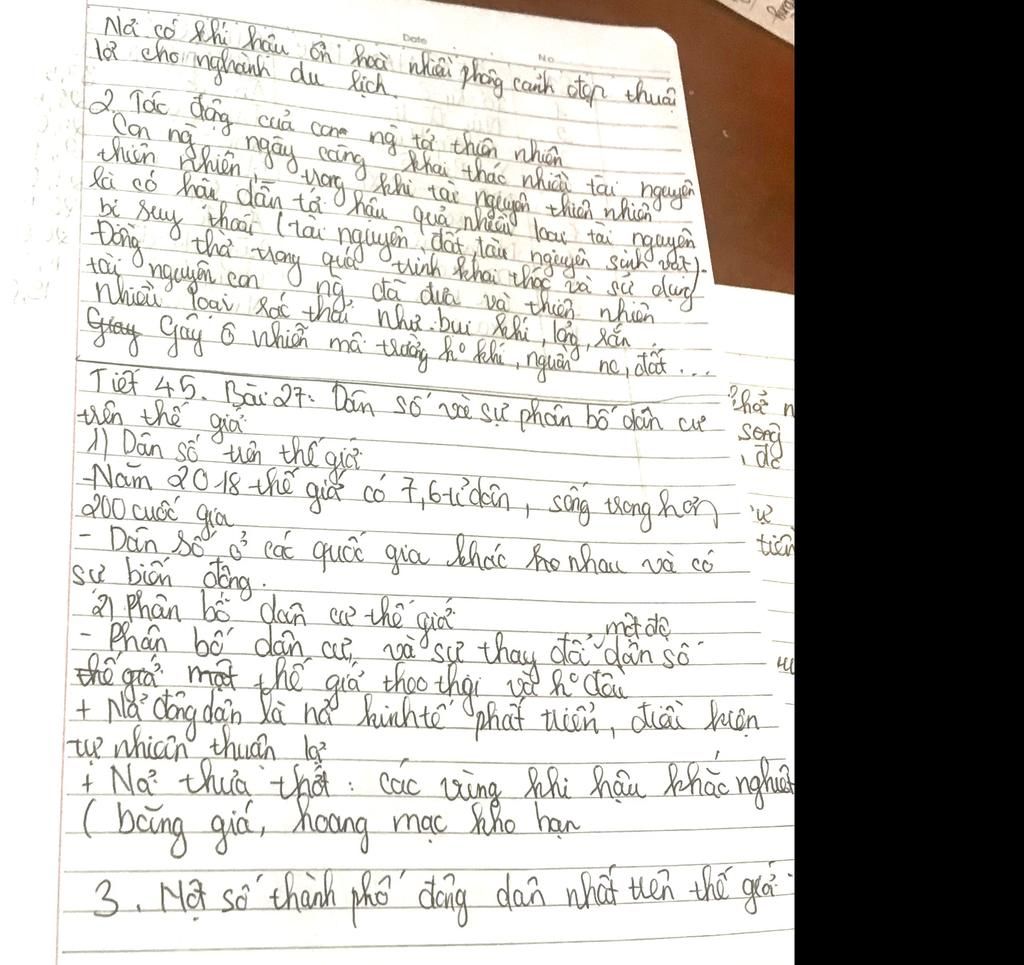 Date
No
Nơi có khí hậu ôn hoà nhiều phong cảnh đẹp thuận
lợi cho nghành du lịch.
2. Tác động của con ng tới thiên nhiên
Con ng ngày càng khai thác nhiều tài nguyên
thiên nhiên, trong khi tài nguyên thiên nhiên
là có hạn, dẫn tới hậu quả nhiều loại tài nguyên
bị suy thoái (tài nguyên đất, tài nguyên sinh vật).
Đồng thời trong quá trình khai thác và sử dụng
tài nguyên con ng đã đưa vào thiên nhiên
nhiều loại rác thải như bụi khí, lỏng, rắn.
Gây ô nhiễn môi trường ko khí, nguồn nc, đất ...
Tiết 45. Bài 27: Dân số và sự phân bố dân cư
trên thế giới
1) Dân số trên thế giới
- Năm 2018 thế giới có 7,6 tỉ dân, sống trong hơn
200 cuốc gia
- Dân số ở các quốc gia khác ho nhau và có
sự biến động.
2) Phân bố dân cư thế giới
mật độ
- Phân bố dân cư, và sự thay đổi dân số
thế giới một thế giới theo thời và ko đều
+ Nơi đông dân là nơi kinh tế phát triển, điều kiện
tự nhiên thuận lợi
+ Nơi thưa thớt: các vùng khí hậu khắc nghiệt
( băng giá, hoang mạc khô hạn
3. Một số thành phố đông dân nhất trên thế giới
song
tiên